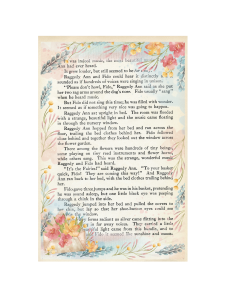 It was indeed voices, the most beautiful
Ann had ever heard.
It grew louder, but still seemed to be far away.
Raggedy Ann and Fido could hear it distinctly
sounded as if hundreds of voices were singing in unison.
"Please don't howl, Fido," Raggedy Ann said as she put
her two rag arms around the dog's nose. Fido usually "sang"
when he heard music.
But Fido did not sing this time; he was filled with wonder.
It seemed as if something very nice was going to happen.
Raggedy Ann sat upright in bed. The room was flooded
with a strange, beautiful light and the music came floating
in through the nursery window.
Raggedy Ann hopped from her bed and ran across the
floor, trailing the bed clothes behind her. Fido followed
close behind and together they looked out the window across
the flower garden.
There among the flowers were hundreds of tiny beings,
some playing on tiny reed instruments and flower horns
while others sang. This was the strange, wonderful magic
Raggedy and Fido had heard.
"It's the Fairies!" said Raggedy Ann. "To your basket
quick, Fido! They are coming this way!" And Raggedy
Ann ran back to her bed, with the bed clothes trailing behind
her.
Fido gave three jumps and he was in his basket, pretending
he was sound asleep, but one little black eye was peeping
through a chink in the side.
Raggedy jumped into her bed and pulled the covers to
her chin, but lay so that her shoe-button eyes could see
the window.
fairy forms radiant as silver came flitting into the
far away voices. They carried a little
light came from this bundle, and to
Fido it seemed like sunshine and moon